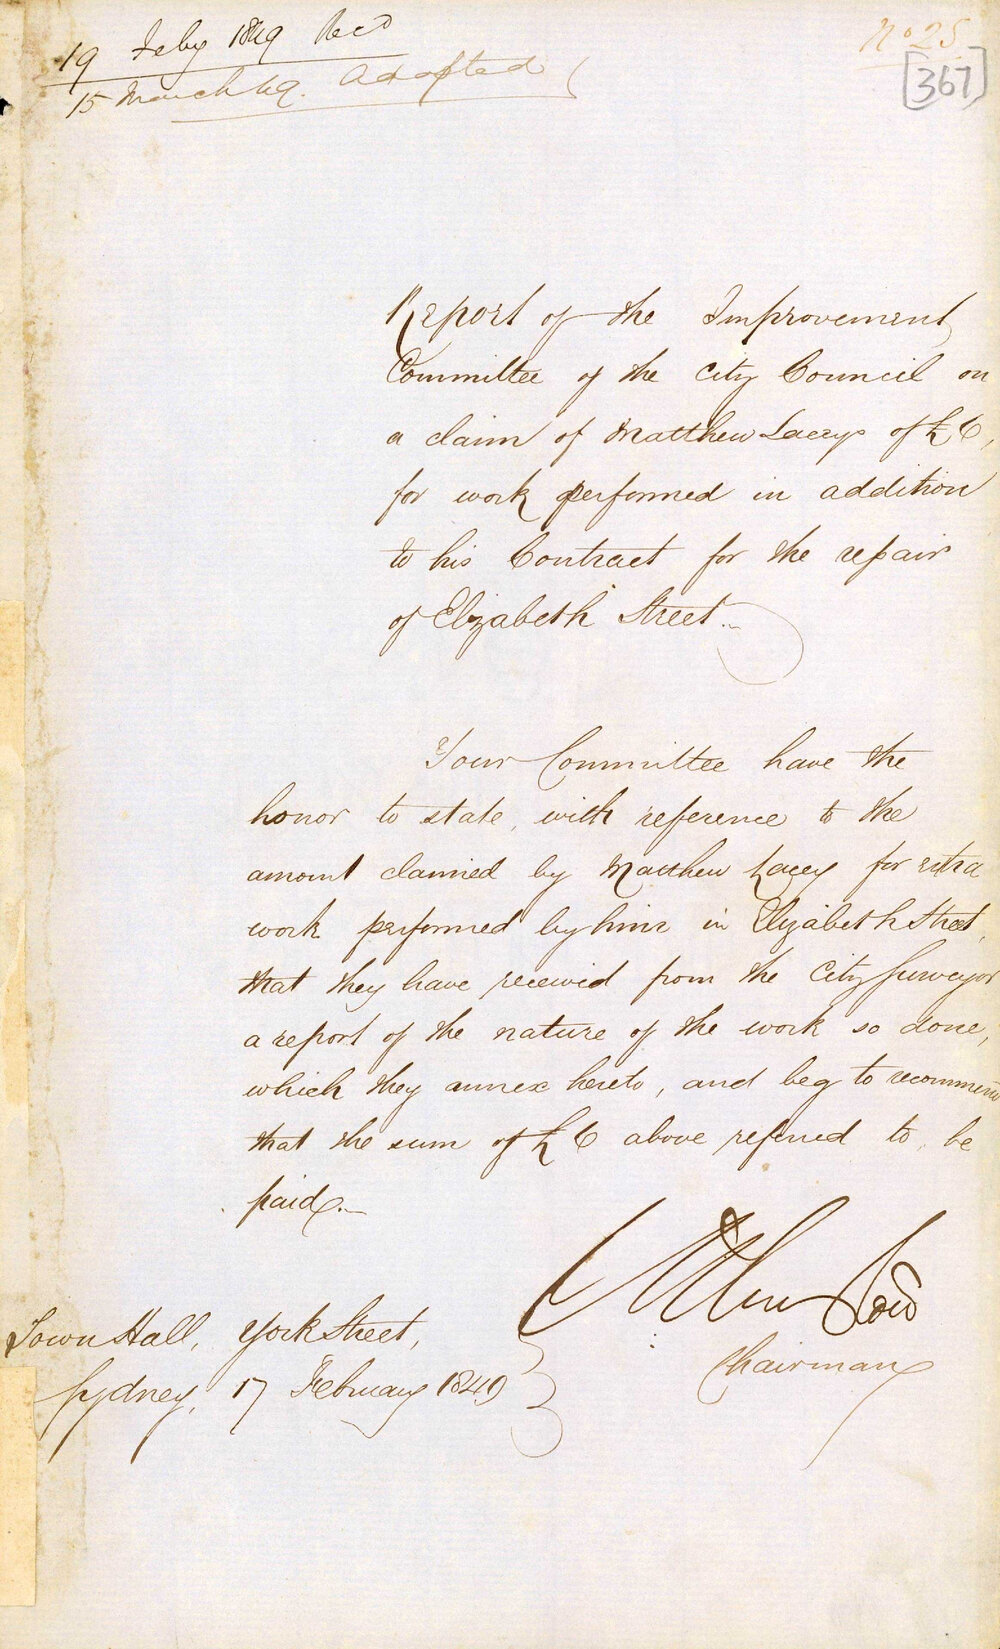 19 Feby 1849 Recd
15 March 49. Adopted
No 25
[367]
Report of the Improvement
Committee of the City Council on
a claim of Matthew Laceys of £6,
for work performed in addition
to his Contract for the repair
of Elizabeth Street.
Your Committee have the
honor to state, with reference to the
amount claimed by Matthew Lacey for extra
work performed by him in Elizabeth Street,
that they have received from the City Surveyor
a report of the nature of the work so done,
which they annex hereto, and beg to recommend
that the sum of £6 above referred to, be
paid.
Chairman
Town Hall, York Street,
Sydney, 17 February 1849